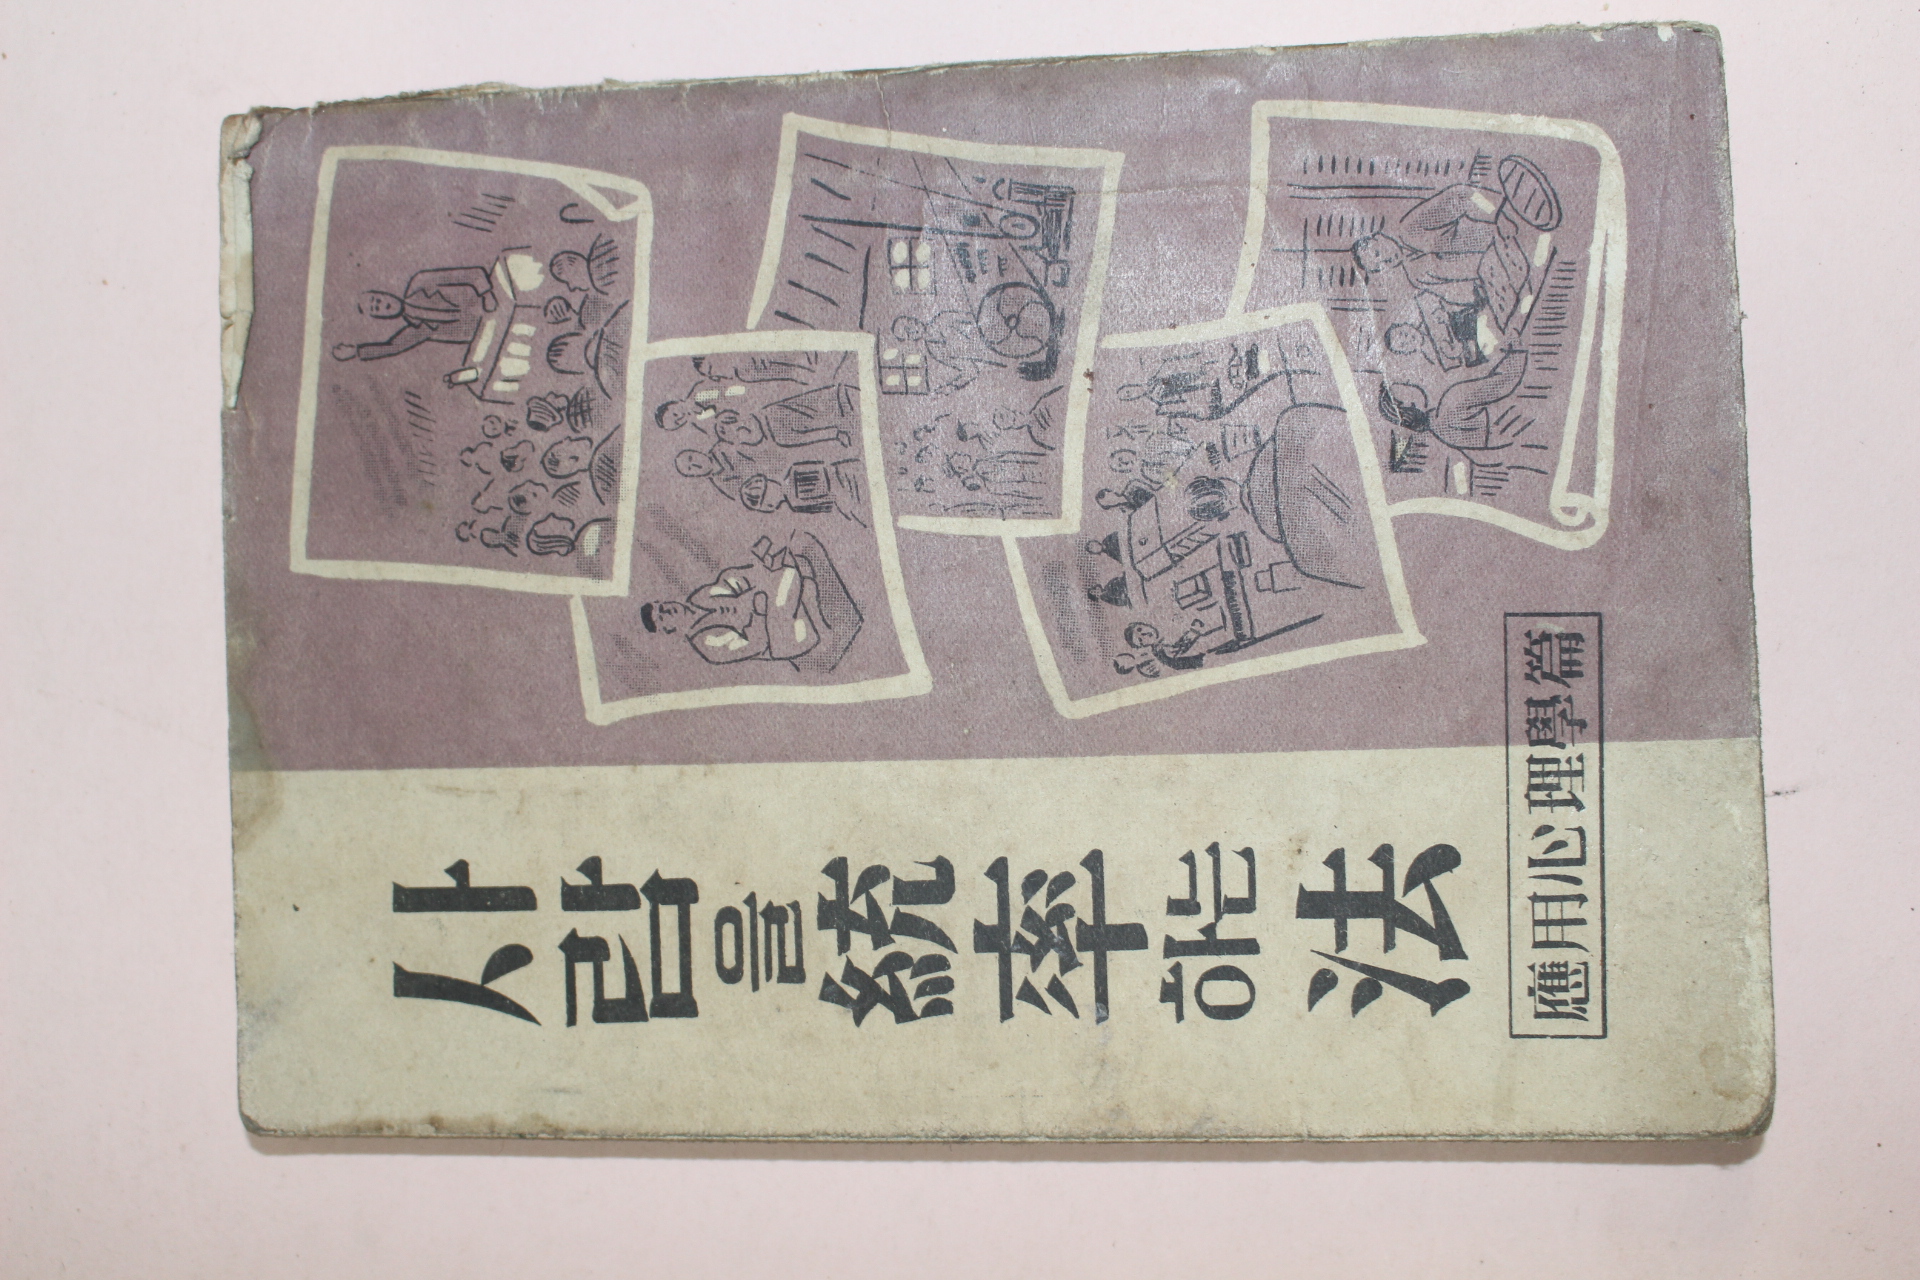 사람을統率하는法
應用心理學篇